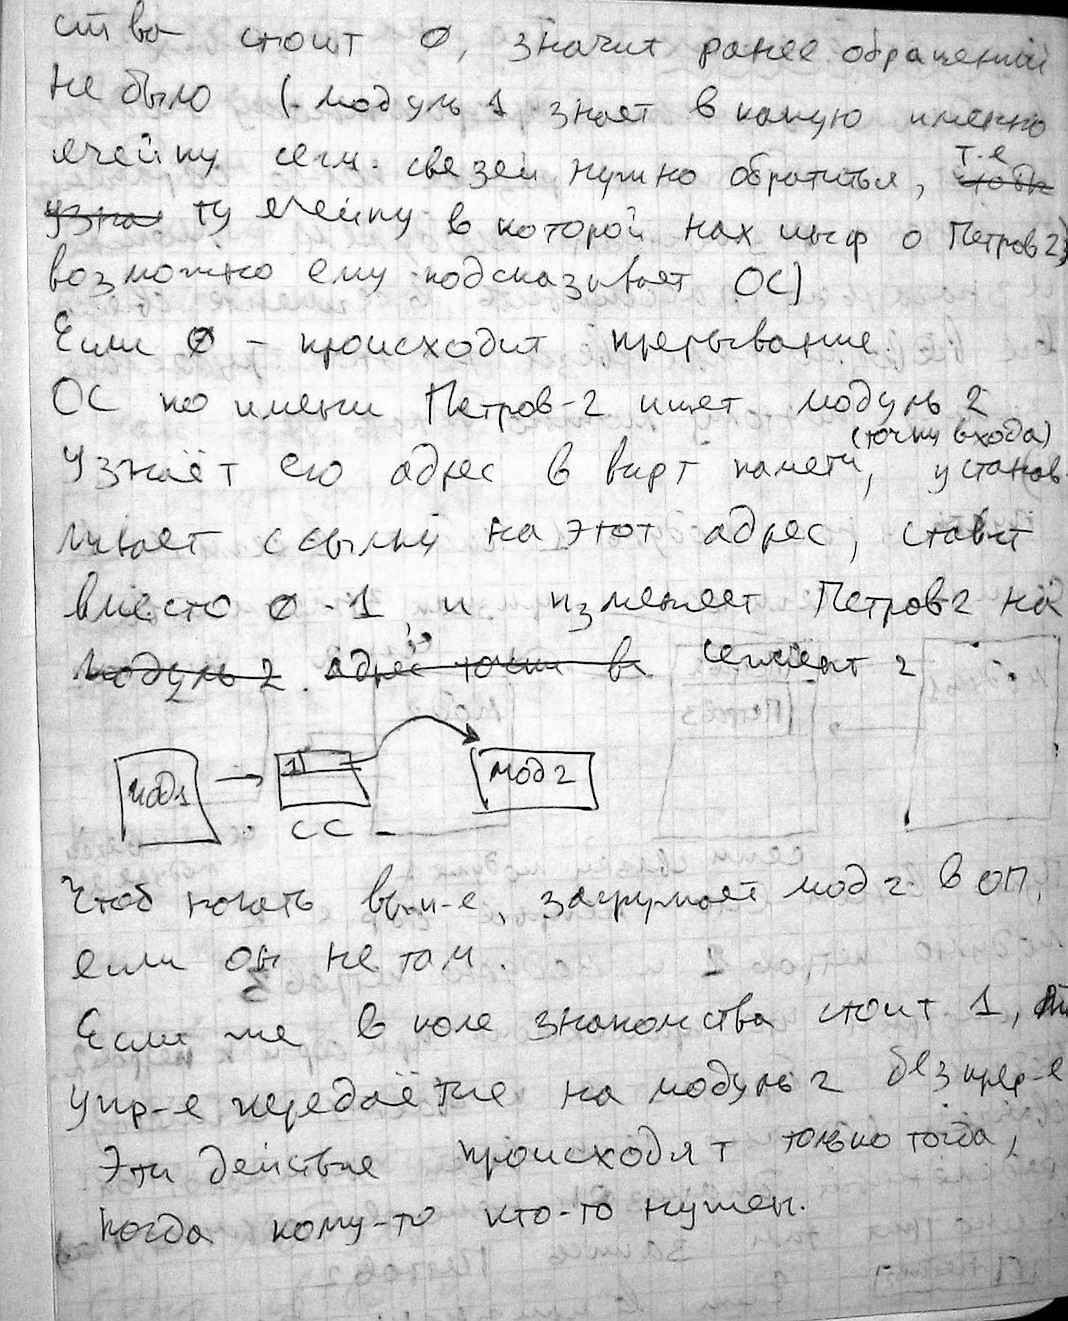 ства стоит 0, значит ранее обращений
не было (модуль 1 знает в какую именно
ячейку сегм. связей нужно обратиться, т.е
ту ячейку в которой нах инф о Петров 2,
возможно ему подсказывает ОС)
Если 0 - происходит прерывание
ОС по имени Петров-2 ищет модуль 2
(точку входа)
Узнаёт его адрес в вирт памяти, устанав-
ливает ссылку на этот адрес, ставит
вместо 0 - 1 и изменяет Петров-2 на
модуль 2. адрес точки в сегмент 2
мод1 1 мод 2
СС
Чтоб начать вып-е, загружает мод 2 в ОП,
если он не там.
Если же в поле знакомства стоит 1,
упр-е передаётся на модуль 2 без прер-е
Эти действие происходят только тогда,
когда кому-то кто-то нужен.